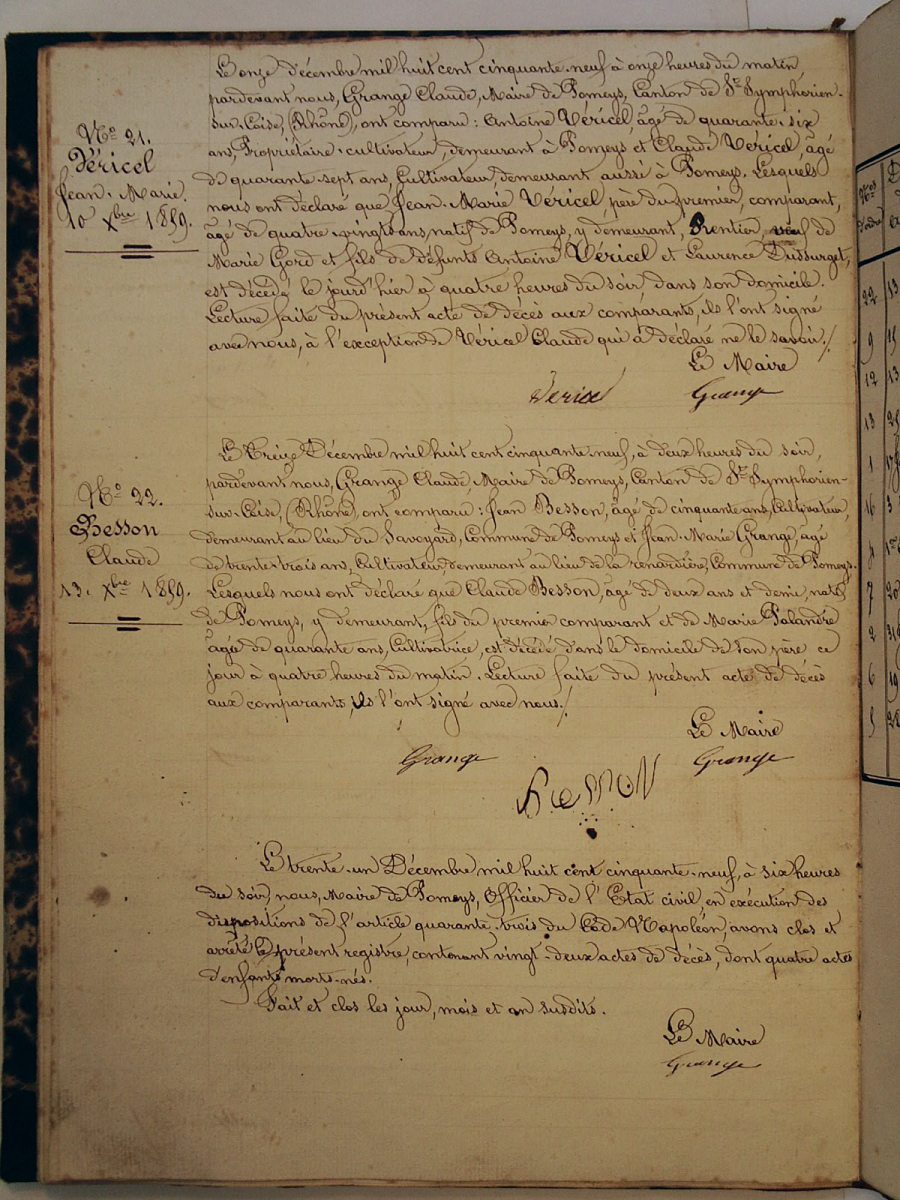 Le onze Décembre mil huit cent cinquante-neuf à onze heures du matin,
pardevant nous, Grange Claude, Maire de Pomeys, Canton de St. Symphorien-
sur-Coise, (Rhône), ont comparu: Antoine Véricel, âgé de quarante-six
ans, Propriétaire-cultivateur, demeurant à Pomeys et Claude Véricel, âgé
de quarante-sept ans, Cultivateur, demeurant aussi à Pomeys. Lesquels
nous ont déclaré que Jean-Marie Véricel, père du premier, comparant,
âgé de quatre-vingts ans, natif de Pomeys, y demeurant, Rentier, veuf de
Marie Gord et fils de défunts Antoine Véricel et Laurence Dussurget,
est décédé le jourd'hier à quatre heures du soir, dans son domicile.
Lecture faite du présent acte de décès aux comparants, ils l'ont signé
avec nous, à l'exception de Véricel Claude qui a déclaré ne le savoir./
Le Maire
Véricel Grange
No. 21.
Véricel
Jean-Marie.
10 Xbre 1859.
Le Treize Décembre mil huit cent cinquante-neuf, à deux heures du soir,
pardevant nous, Grange Claude, Maire de Pomeys, Canton de St. Symphorien-
sur-Coise, (Rhône), ont comparu: Jean Besson, âgé de cinquante ans, Cultivateur,
demeurant au lieu du Savoyard, Commune de Pomeys et Jean-Marie Grange, âgé
de trente-trois ans, Cultivateur, demeurant au lieu de la renardière, Commune de Pomeys.
Lesquels nous ont déclaré que Claude Besson, âgé de deux ans et demi, natif
de Pomeys, y demeurant, fils du premier comparant et de Marie Palandre
âgée de quarante ans, Cultivatrice, est décédé dans le domicile de son père ce
jour à quatre heures du matin. Lecture faite du présent acte de décès
aux comparants, ils l'ont signé avec nous./
Le Maire
Grange Grange
Besson
No. 22.
Besson
Claude
13. Xbre 1859.
Le trente-un Décembre mil huit cent cinquante-neuf, à six heures
du soir, nous, Maire de Pomeys, Officier de l'Etat civil, en exécution des
dispositions de l'article quarante-trois du Code Napoléon, avons clos et
arrêté le présent registre, contenant vingt-deux actes de décès, dont quatre actes
d'enfants morts-nés.
Fait et clos les jour, mois et an susdits.
Le Maire
Grange
Nos
d'ordre
22 13
9
12 13
13
1
16 3
7 20
2
6 19
5